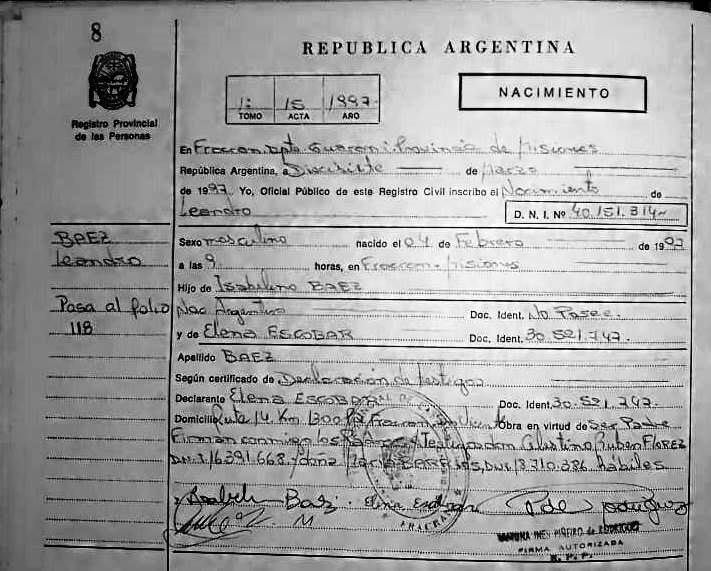 8
REPUBLICA ARGENTINA
Registro Provincial
de las Personas
1: 15 1997
TOMO ACTA AÑO
NACIMIENTO
En Fracran Dpto Guarani Provincia de Misiones
República Argentina, a Diecisiete de Marzo
de 1997. Yo, Oficial Público de este Registro Civil inscribo el Nacimiento de
Leandro D. N. I. Nº 40.151.314
BAEZ
Leandro
Sexo masculino nacido el 04 de Febrero de 1997
a las 9 horas, en Fracran Misiones
Hijo de Isabelino BAEZ
Pasa al folio
118
Nac Argentino Doc. Ident. No Posee.
y de Elena ESCOBAR Doc. Ident. 30.521.747.
Apellido BAEZ
Según certificado de Declaración de testigos
Declarante Elena ESCOBAR Doc. Ident. 30.521.747.
Domicilio Ruta 14 Km 1300 Fracran Obra en virtud de Ser Padre
Firman conmigo los Padres testigos don Celestino Ruben FLOREZ
habiles
Baez
FIRMA AUTORIZADA